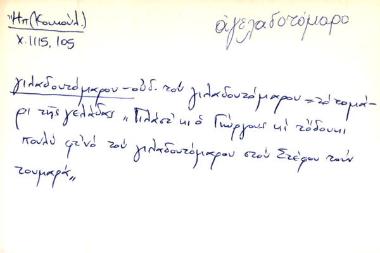 Ἤπ (Κουκούλ)
χ. 1115, 105
ἀγελαδοτόμαρο
γιλαδουτόμαρου - οὐδ. τού γιλαδουτόμαρου = τό τομά-
ρι τῆς γελάδας „ Πλάστ' κι ὁ Γιώργους κι τὄδουκι
πολύ φτ'νό τού γιλαδουτόμαρου στού Στέφου τούν
τουμαρᾶ „